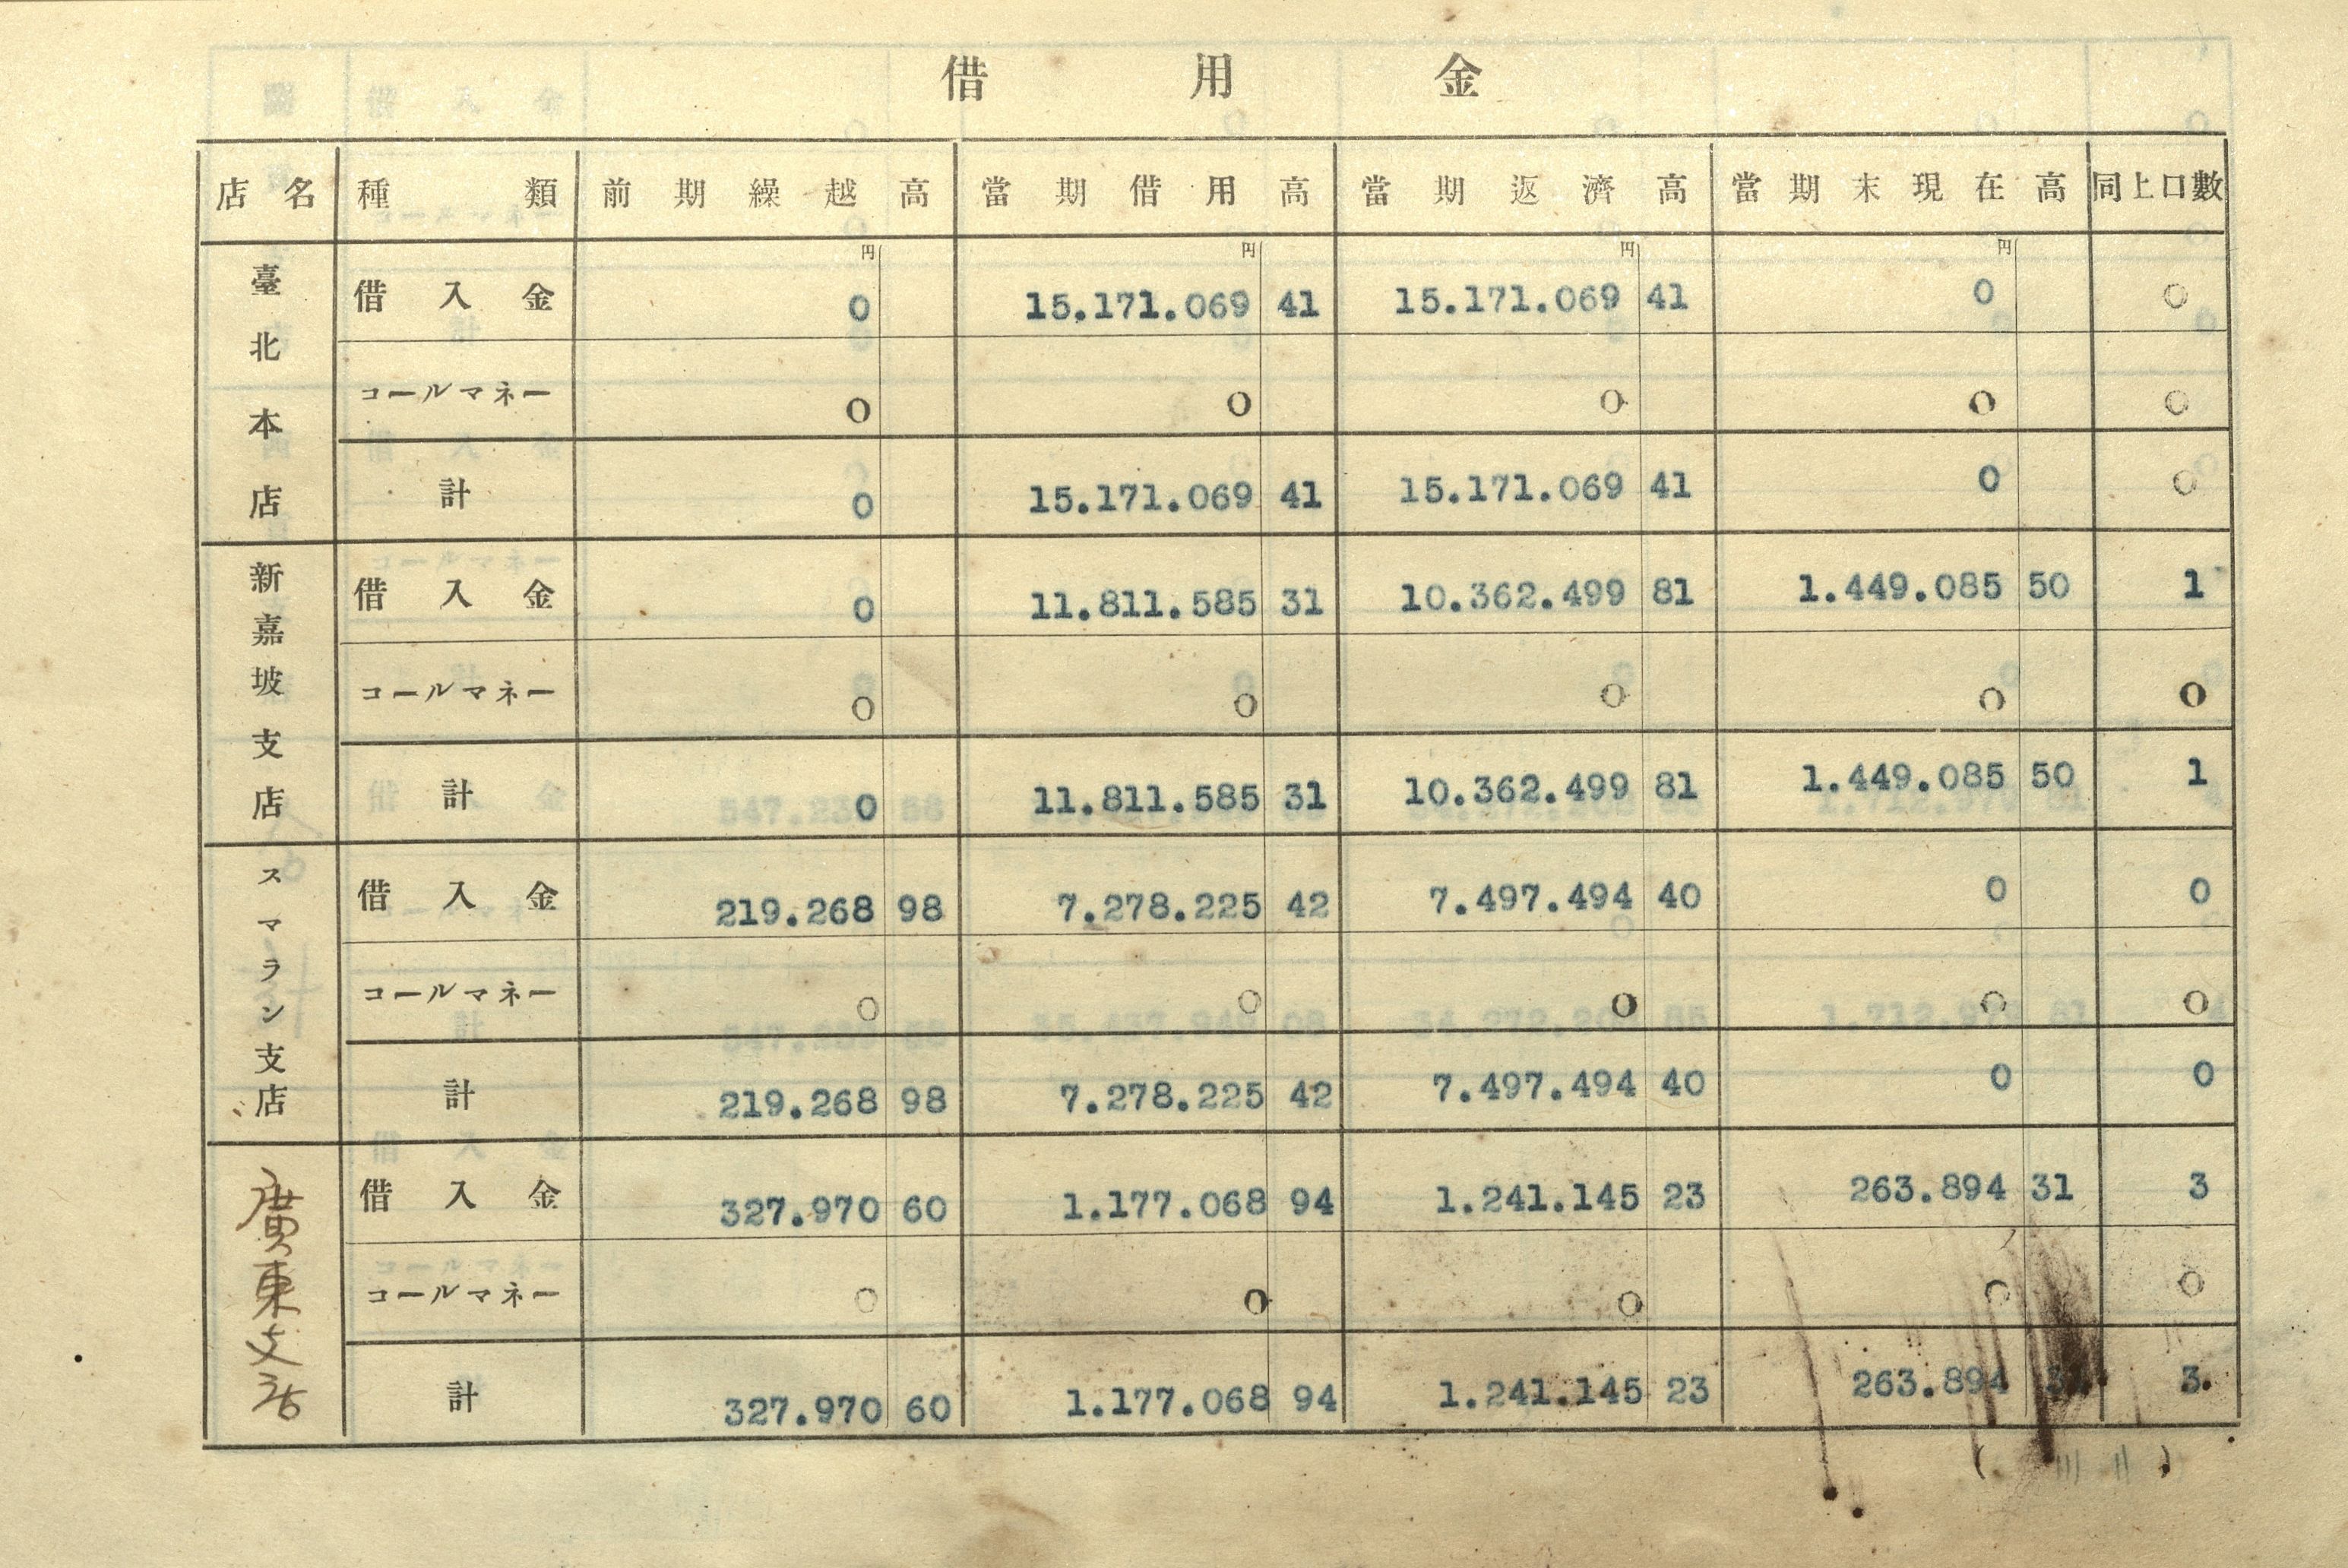 借用金
店名 種類 前期繰越高 當期借用高 當期返濟高 當期末現在高 同上口數
円 円 円 円
臺北本店
借入金 0 15.171.069 41 15.171.069 41 0 0
コールマネー 0 0 0 0 0
計 0 15.171.069 41 15.171.069 41 0 0
新嘉坡支店
借入金 0 11.811.585 31 10.362.499 81 1.449.085 50 1
コールマネー 0 0 0 0 0
計 0 11.811.585 31 10.362.499 81 1.449.085 50 1
スマラン支店
借入金 219.268 98 7.278.225 42 7.497.494 40 0 0
コールマネー 0 0 0 0 0
計 219.268 98 7.278.225 42 7.497.494 40 0 0
廣東支店
借入金 327.970 60 1.177.068 94 1.241.145 23 263.894 31 3
コールマネー 0 0 0 0 0
計 327.970 60 1.177.068 94 1.241.145 23 263.894 3